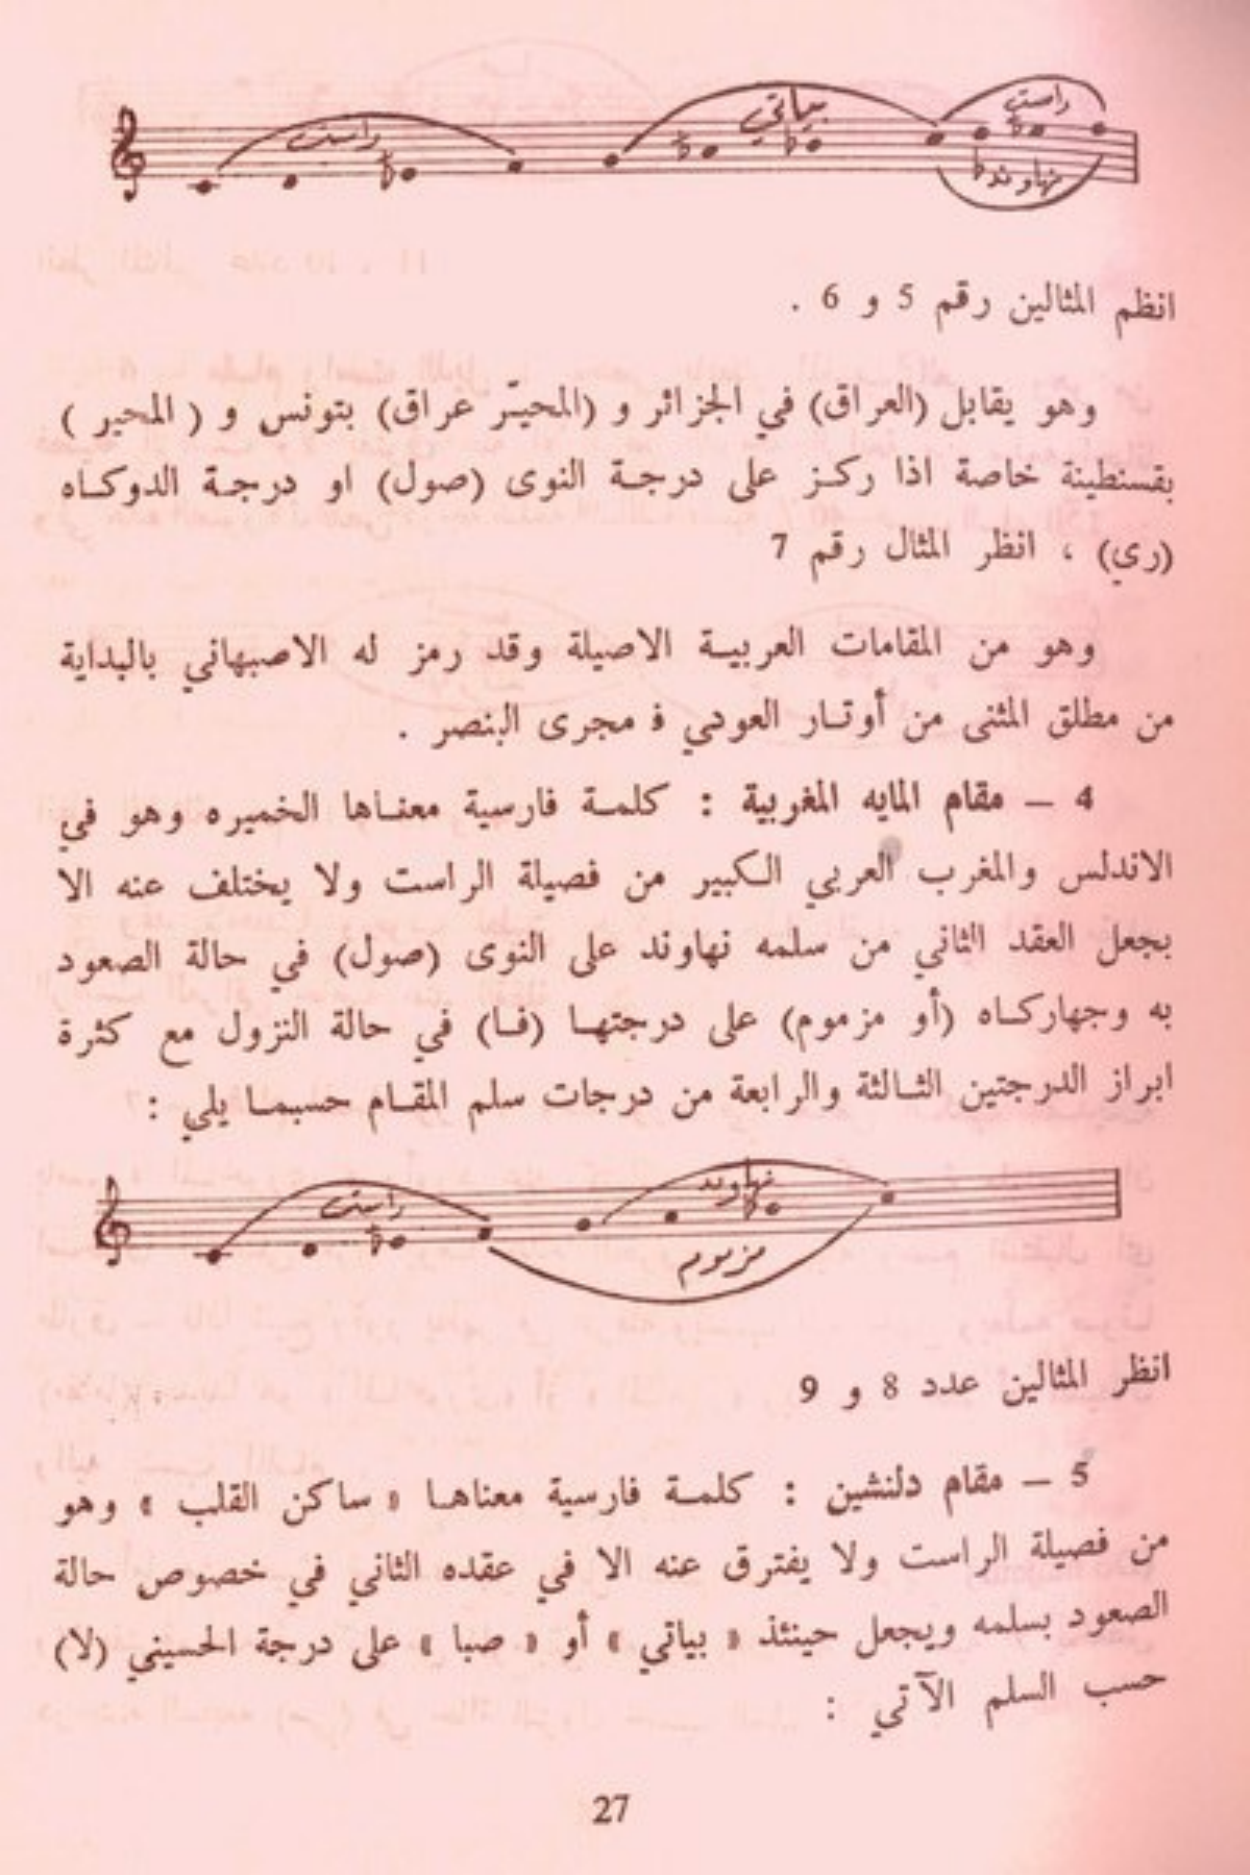 راست بياتي راست
نهاوند
انظم المثالين رقم 5 و 6 .
وهو يقابل (العراق) في الجزائر و (المحيّر عراق) بتونس و ( المحير )
بقسنطينة خاصة اذا ركز على درجة النوى (صول) او درجة الدوكاه
(ري) ، انظر المثال رقم 7
وهو من المقامات العربية الاصيلة وقد رمز له الاصبهاني بالبداية
من مطلق المثنى من أوتار العودي ف مجرى البنصر .
4 — مقام المايه المغربية : كلمة فارسية معناها الخميره وهو في
الاندلس والمغرب العربي الكبير من فصيلة الراست ولا يختلف عنه الا
بجعل العقد الثاني من سلمه نهاوند على النوى (صول) في حالة الصعود
به وجهاركاه (أو مزموم) على درجتها (فا) في حالة النزول مع كثرة
ابراز الدرجتين الثالثة والرابعة من درجات سلم المقام حسبما يلي :
راست نهاوند
مزموم
انظر المثالين عدد 8 و 9
5 — مقام دلنشين : كلمة فارسية معناها « ساكن القلب » وهو
من فصيلة الراست ولا يفترق عنه الا في عقده الثاني في خصوص حالة
الصعود بسلمه ويجعل حينئذ « بياتي » أو « صبا » على درجة الحسيني (لا)
حسب السلم الآتي :
27